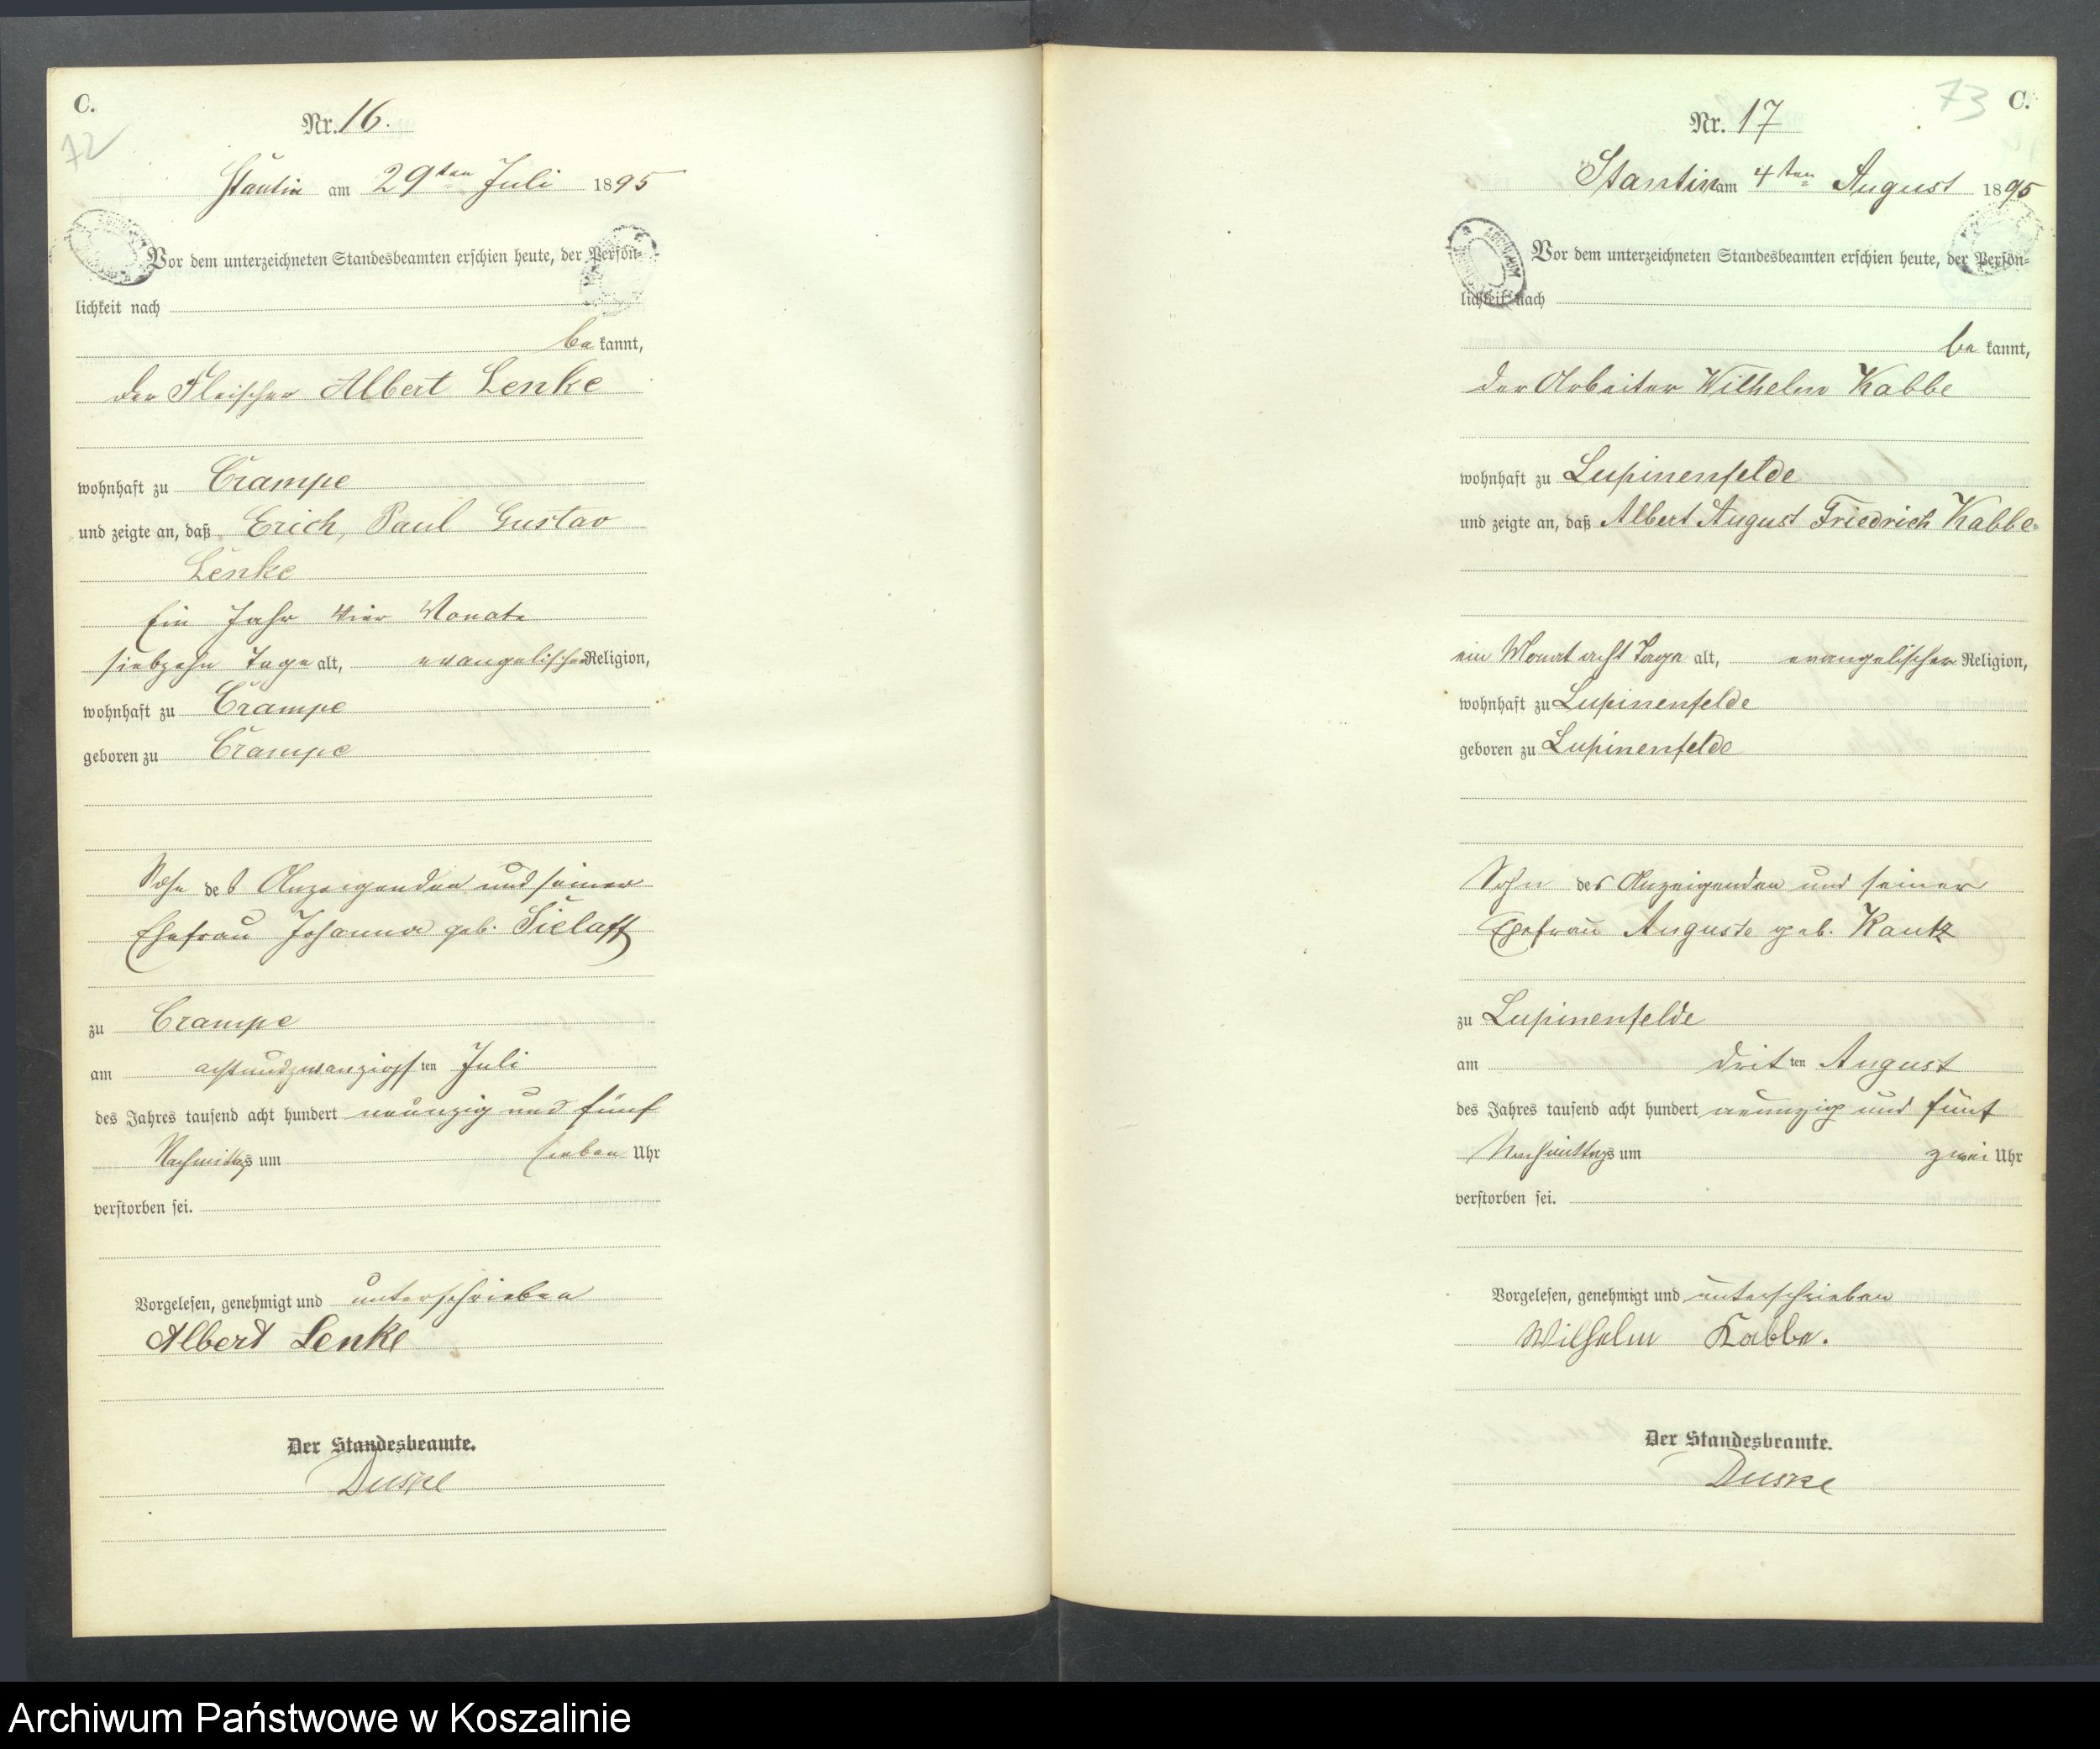 C.
72
Nr. 16.
Stantin am 29ten Juli 1895
Vor dem unterzeichneten Standesbeamten erschien heute, der Persön-
lichkeit nach
bekannt,
der Fleischer Albert Lenke
wohnhaft zu Crampe
und zeigte an, daß Erich, Paul Gustav
Lenke
Ein Jahr vier Monate
siebzehn Tage alt, evangelischer Religion,
wohnhaft zu Crampe
geboren zu Crampe
Sohn des Anzeigenden und seiner
Ehefrau Johanna geb. Sielaff
zu Crampe
am achtundzwanzigsten Juli
des Jahres tausend acht hundert neunzig und fünf
Nachmittags um sieben Uhr
verstorben sei.
Vorgelesen, genehmigt und unterschrieben
Albert Lenke
Der Standesbeamte.
Duske
73
C.
Nr. 17
Stantin am 4ten August 1895
Vor dem unterzeichneten Standesbeamten erschien heute, der Persön-
lichkeit nach
bekannt,
der Arbeiter Wilhelm Kabbe
wohnhaft zu Lupinenfelde
und zeigte an, daß Albert August Friedrich Kabbe
ein Monat acht Tage alt, evangelischer Religion,
wohnhaft zu Lupinenfelde
geboren zu Lupinenfelde
Sohn des Anzeigenden und seiner
Ehefrau Auguste geb. Kautz
zu Lupinenfelde
am dritten August
des Jahres tausend acht hundert neunzig und fünf
Nachmittags um zwei Uhr
verstorben sei.
Vorgelesen, genehmigt und unterschrieben
Wilhelm Kabbe.
Der Standesbeamte.
Duske
Archiwum Państwowe w Koszalinie